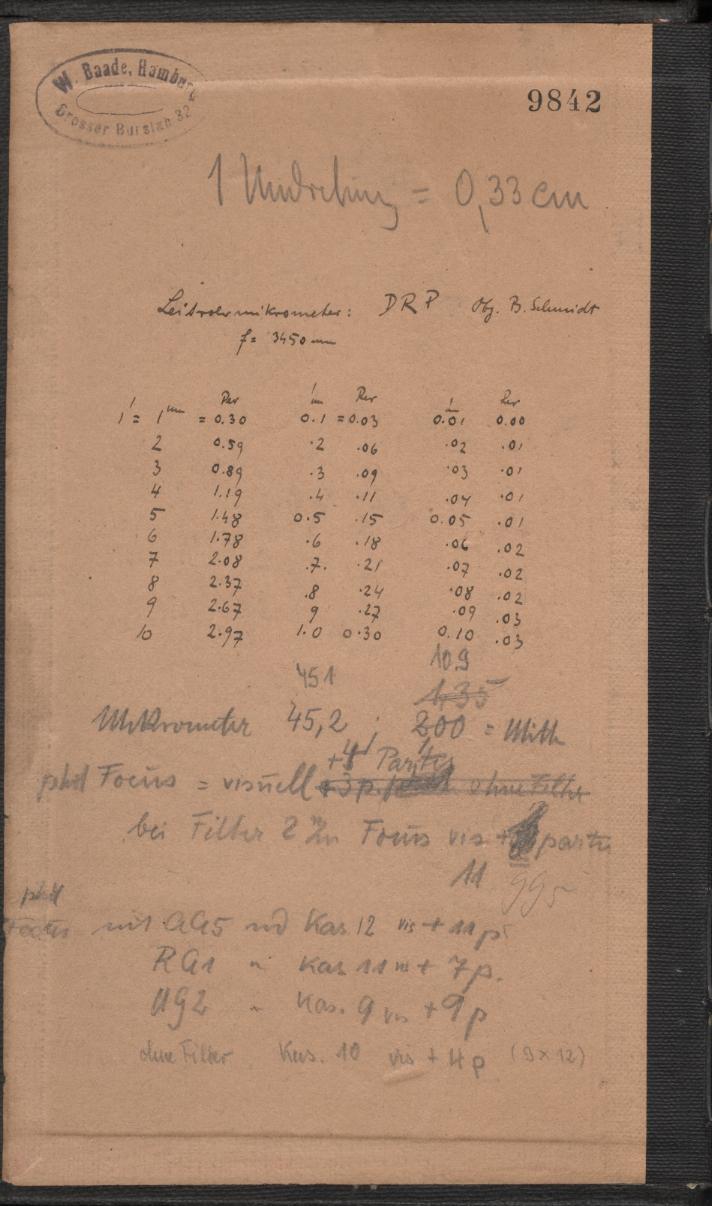 W. Baade, Hamburg
Grosser Burstah 32
9842
1 Umdrehung = 0,33 cm
Leitrohrmikrometer: DRP Obj. B. Schmidt
f = 3450 mm
Rev Rev Rev
1 = 1 mm = 0.30 0.1 = 0.03 0.01 0.00
2 0.59 .2 .06 .02 .01
3 0.89 .3 .09 .03 .01
4 1.19 .4 .11 .04 .01
5 1.48 0.5 .15 0.05 .01
6 1.78 .6 .18 .06 .02
7 2.08 .7 .21 .07 .02
8 2.37 .8 .24 .08 .02
9 2.67 9 .27 .09 .03
10 2.97 1.0 0.30 0.10 .03
451 109
1,35
Mikrometer 45,2 200 = Mitte
+4 Partes
Focus = visuell +3p. ohne Filter
bei Filter 2 Focus vis + partes
11 995
phot
Focus mit Kas 12 vis + 11 p
RG1 " Kas 11 vis + 7 p.
UG2 " Kas. 9 vis + 9 p
ohne Filter Kas. 10 vis + 4 p (9 x 12)